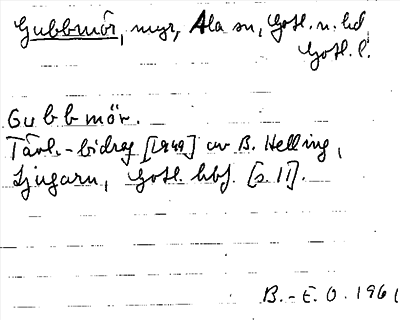 Gubbmör, myr, Ala sn, Gotl. n. hd
Gotl. l.
Gubbmör.
Tävl.-bidrag [1949] av B. Helling,
Ljugarn, Gotl. hbf. [s. 11].
B.-E. O. 1961